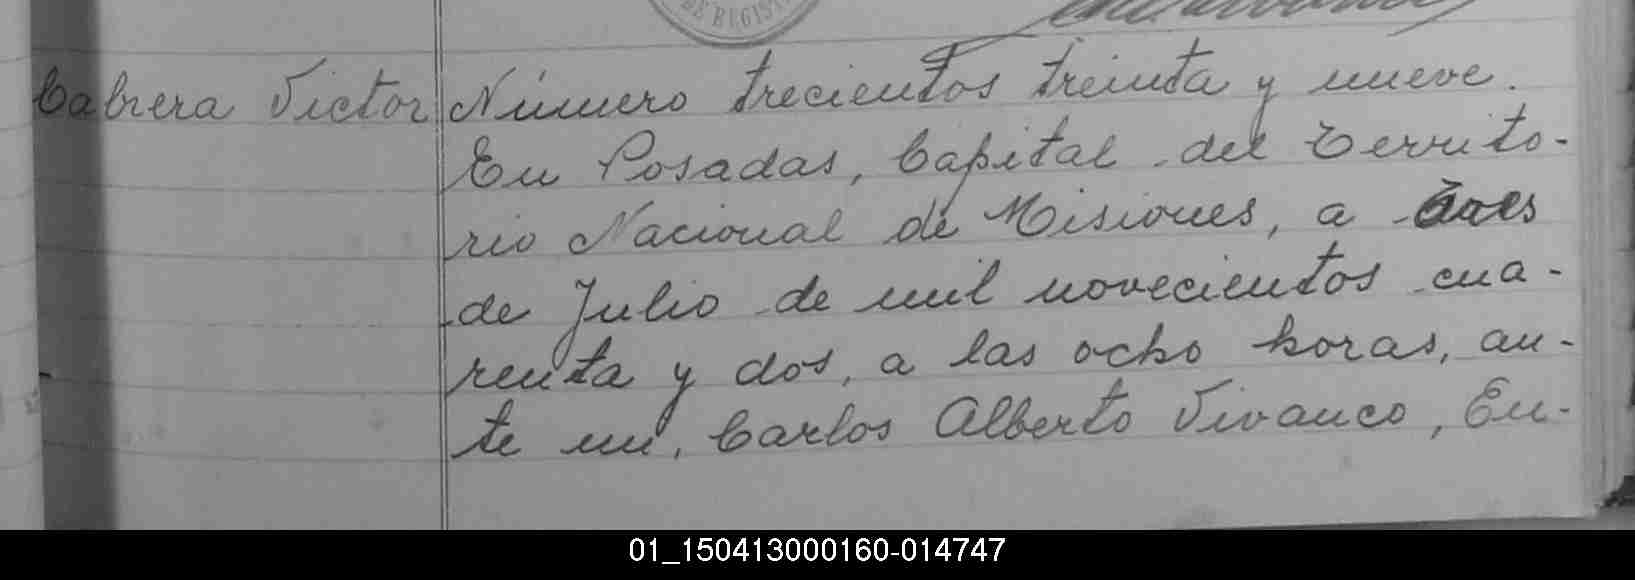 DE REGIST
Cabrera Victor
Número trecientos treinta y nueve.
En Posadas, Capital del Territo-
rio Nacional de Misiones, a
de Julio de mil novecientos cua-
renta y dos, a las ocho horas, an-
te mi, Carlos Alberto Vivanco, En-
01_150413000160-014747